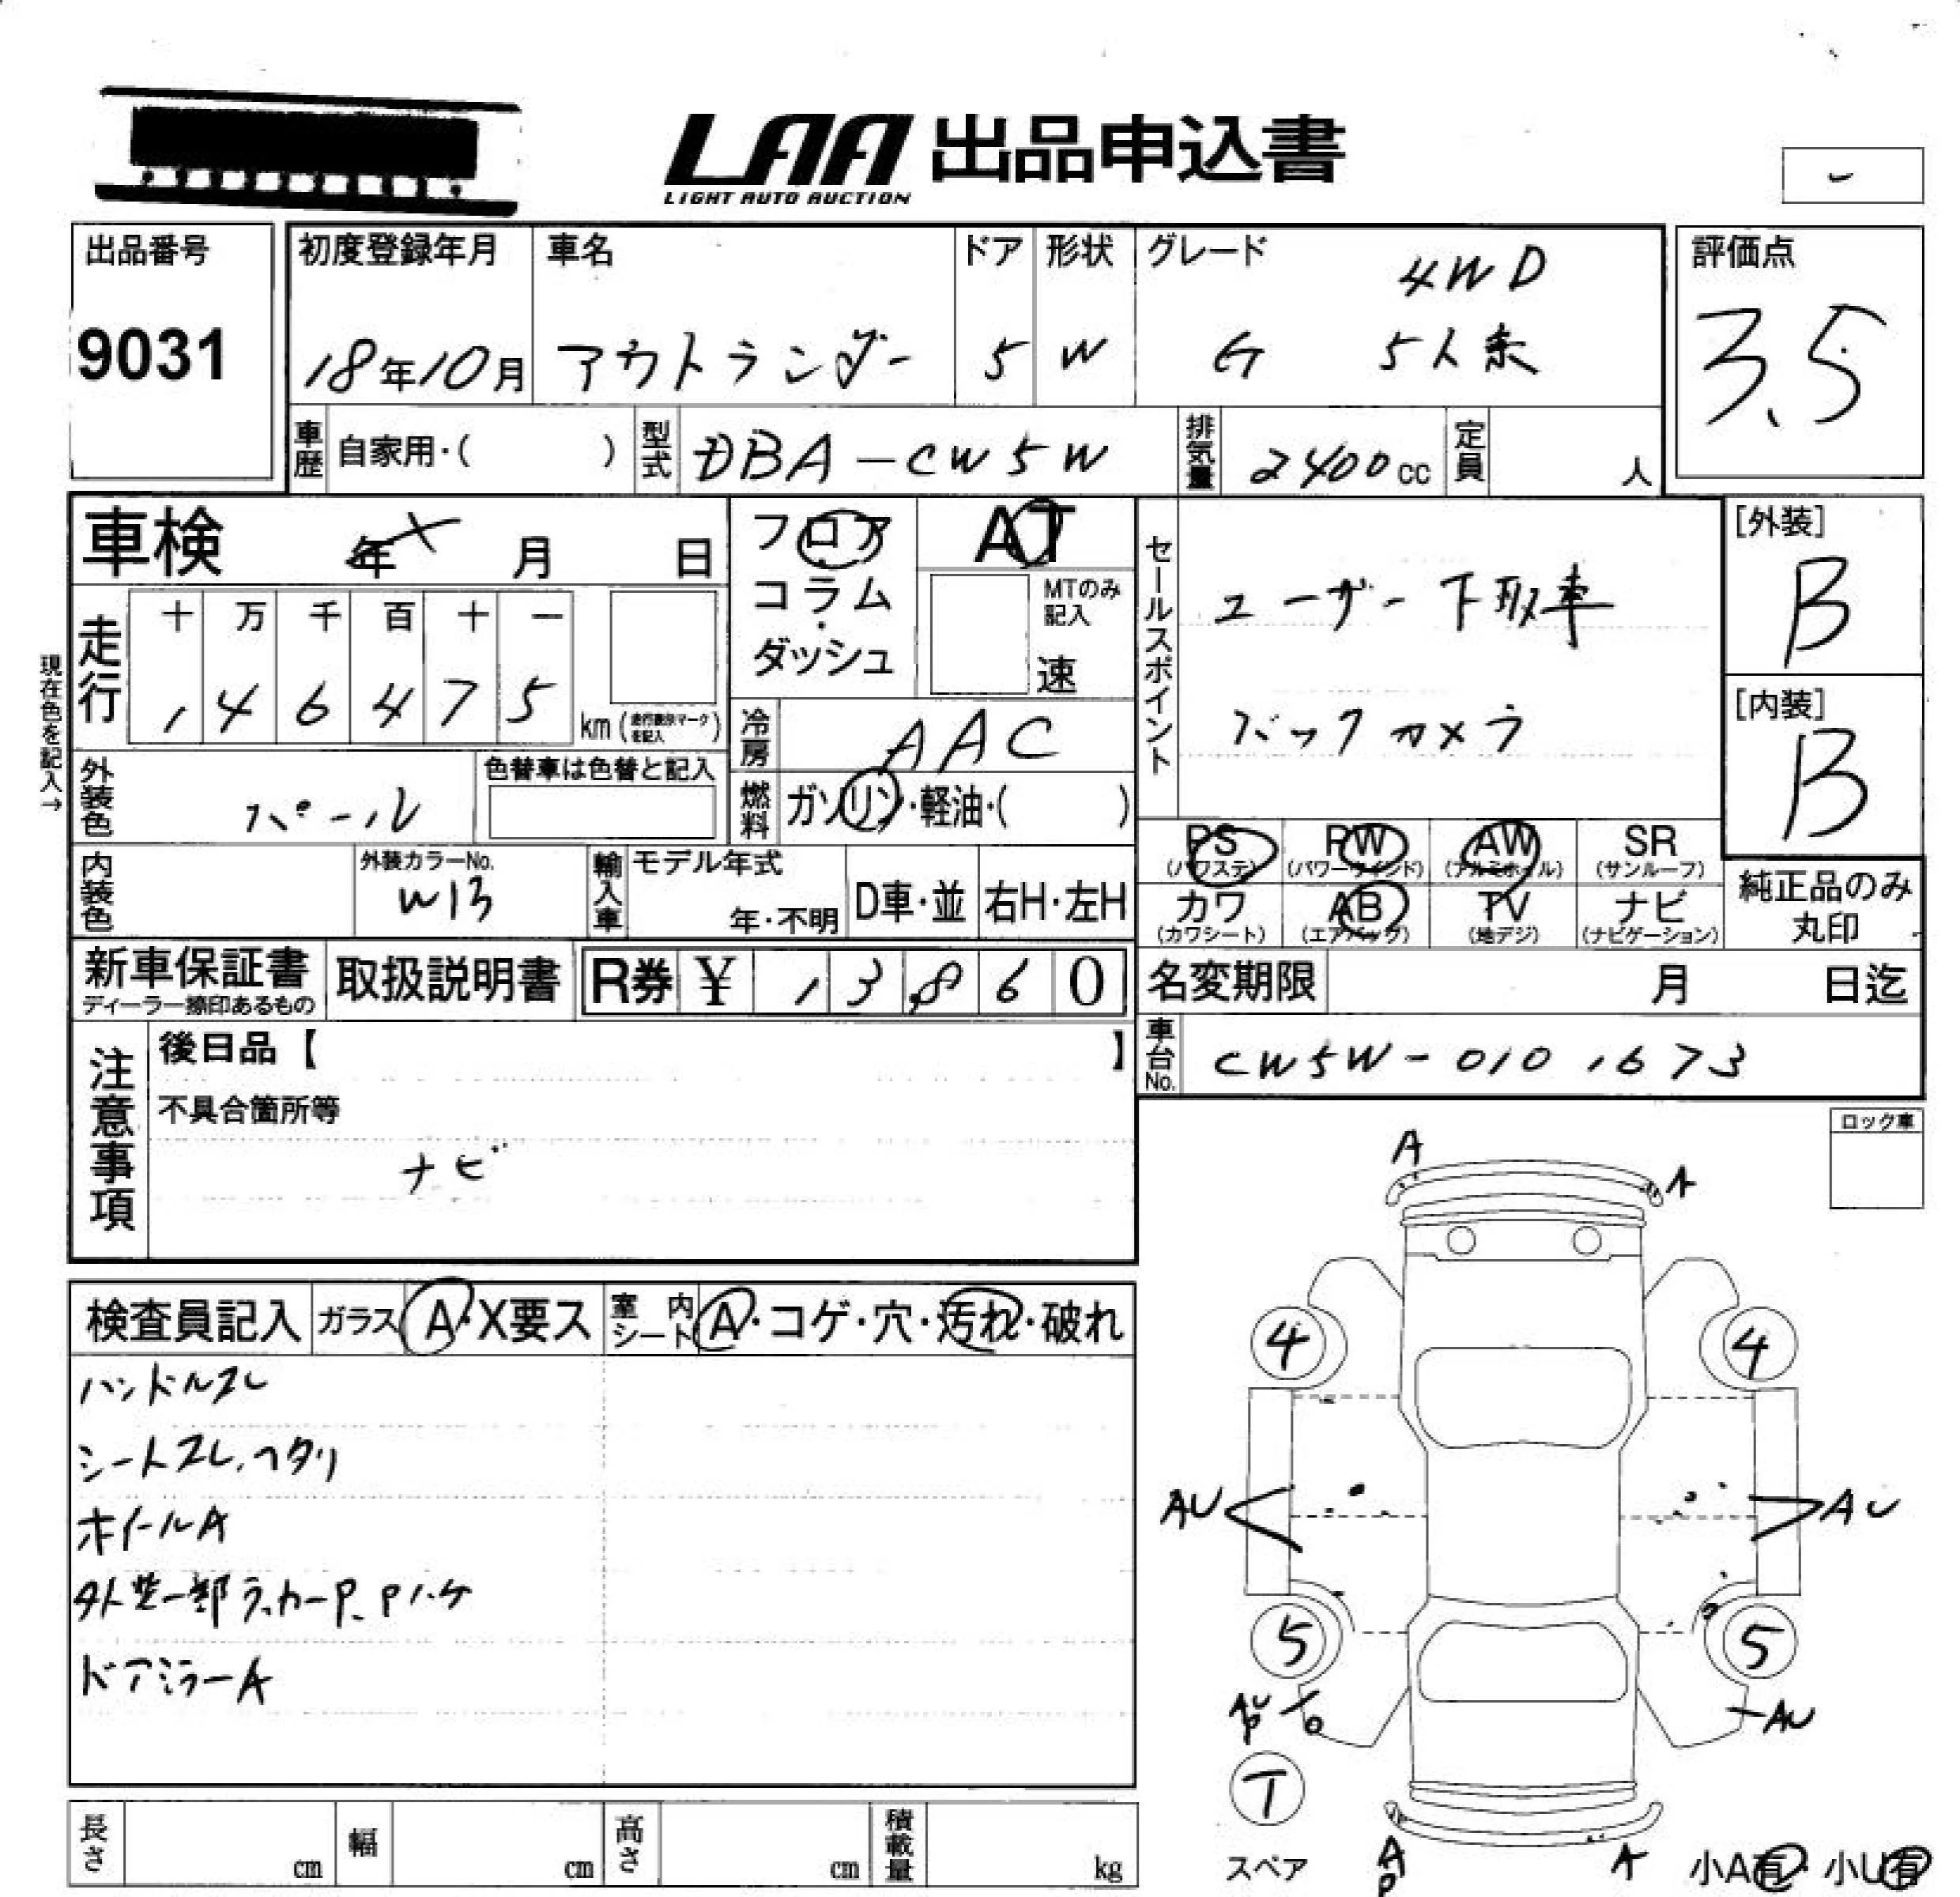 LAA 出品申込書
LIGHT AUTO AUCTION
出品番号
9031
初度登録年月
18年10月
車名
アウトランダー
ドア
5
形状
W
グレード
4WD
G 5人乗
評価点
3.5
車歴
自家用・( )
型式
DBA-CW5W
排気量
2400cc
定員
人
車検 年 月 日
現在色を記入→
走行
十 万 千 百 十 一
1 4 6 4 7 5
km (走行表示マークを記入)
フロア
・
コラム
・
ダッシュ
AT
MTのみ
記入
速
冷房
AAC
燃料
ガソリン・軽油・( )
外装色
パール
色替車は色替と記入
内装色
外装カラーNo.
W13
輸入車
モデル年式
年・不明
D車・並
右H・左H
セールスポイント
ユーザー下取車
バックカメラ
[外装]
B
[内装]
B
PS
(パワステ)
PW
(パワーウインド)
AW
(アルミホイル)
SR
(サンルーフ)
カワ
(カワシート)
AB
(エアバッグ)
TV
(地デジ)
ナビ
(ナビゲーション)
純正品のみ
丸印
新車保証書
ディーラー捺印あるもの
取扱説明書
R券 ¥ 13,860
名変期限 月 日迄
車台No.
CW5W-0101673
注意事項
後日品【 】
不具合箇所等
ナビ
ロック車
検査員記入
ガラス A・X要ス
室内シート A・コゲ・穴・汚れ・破れ
ハンドルスレ
シートスレ、ヘタリ
ホイールA
外装一部ラッカーP、Pハゲ
ドアミラーA
A
A
4
4
AU
AU
5
5
AU
P
AU
T
スペア
A
P
A
小A有・小U有
長さ
cm
幅
cm
高さ
cm
積載量
kg